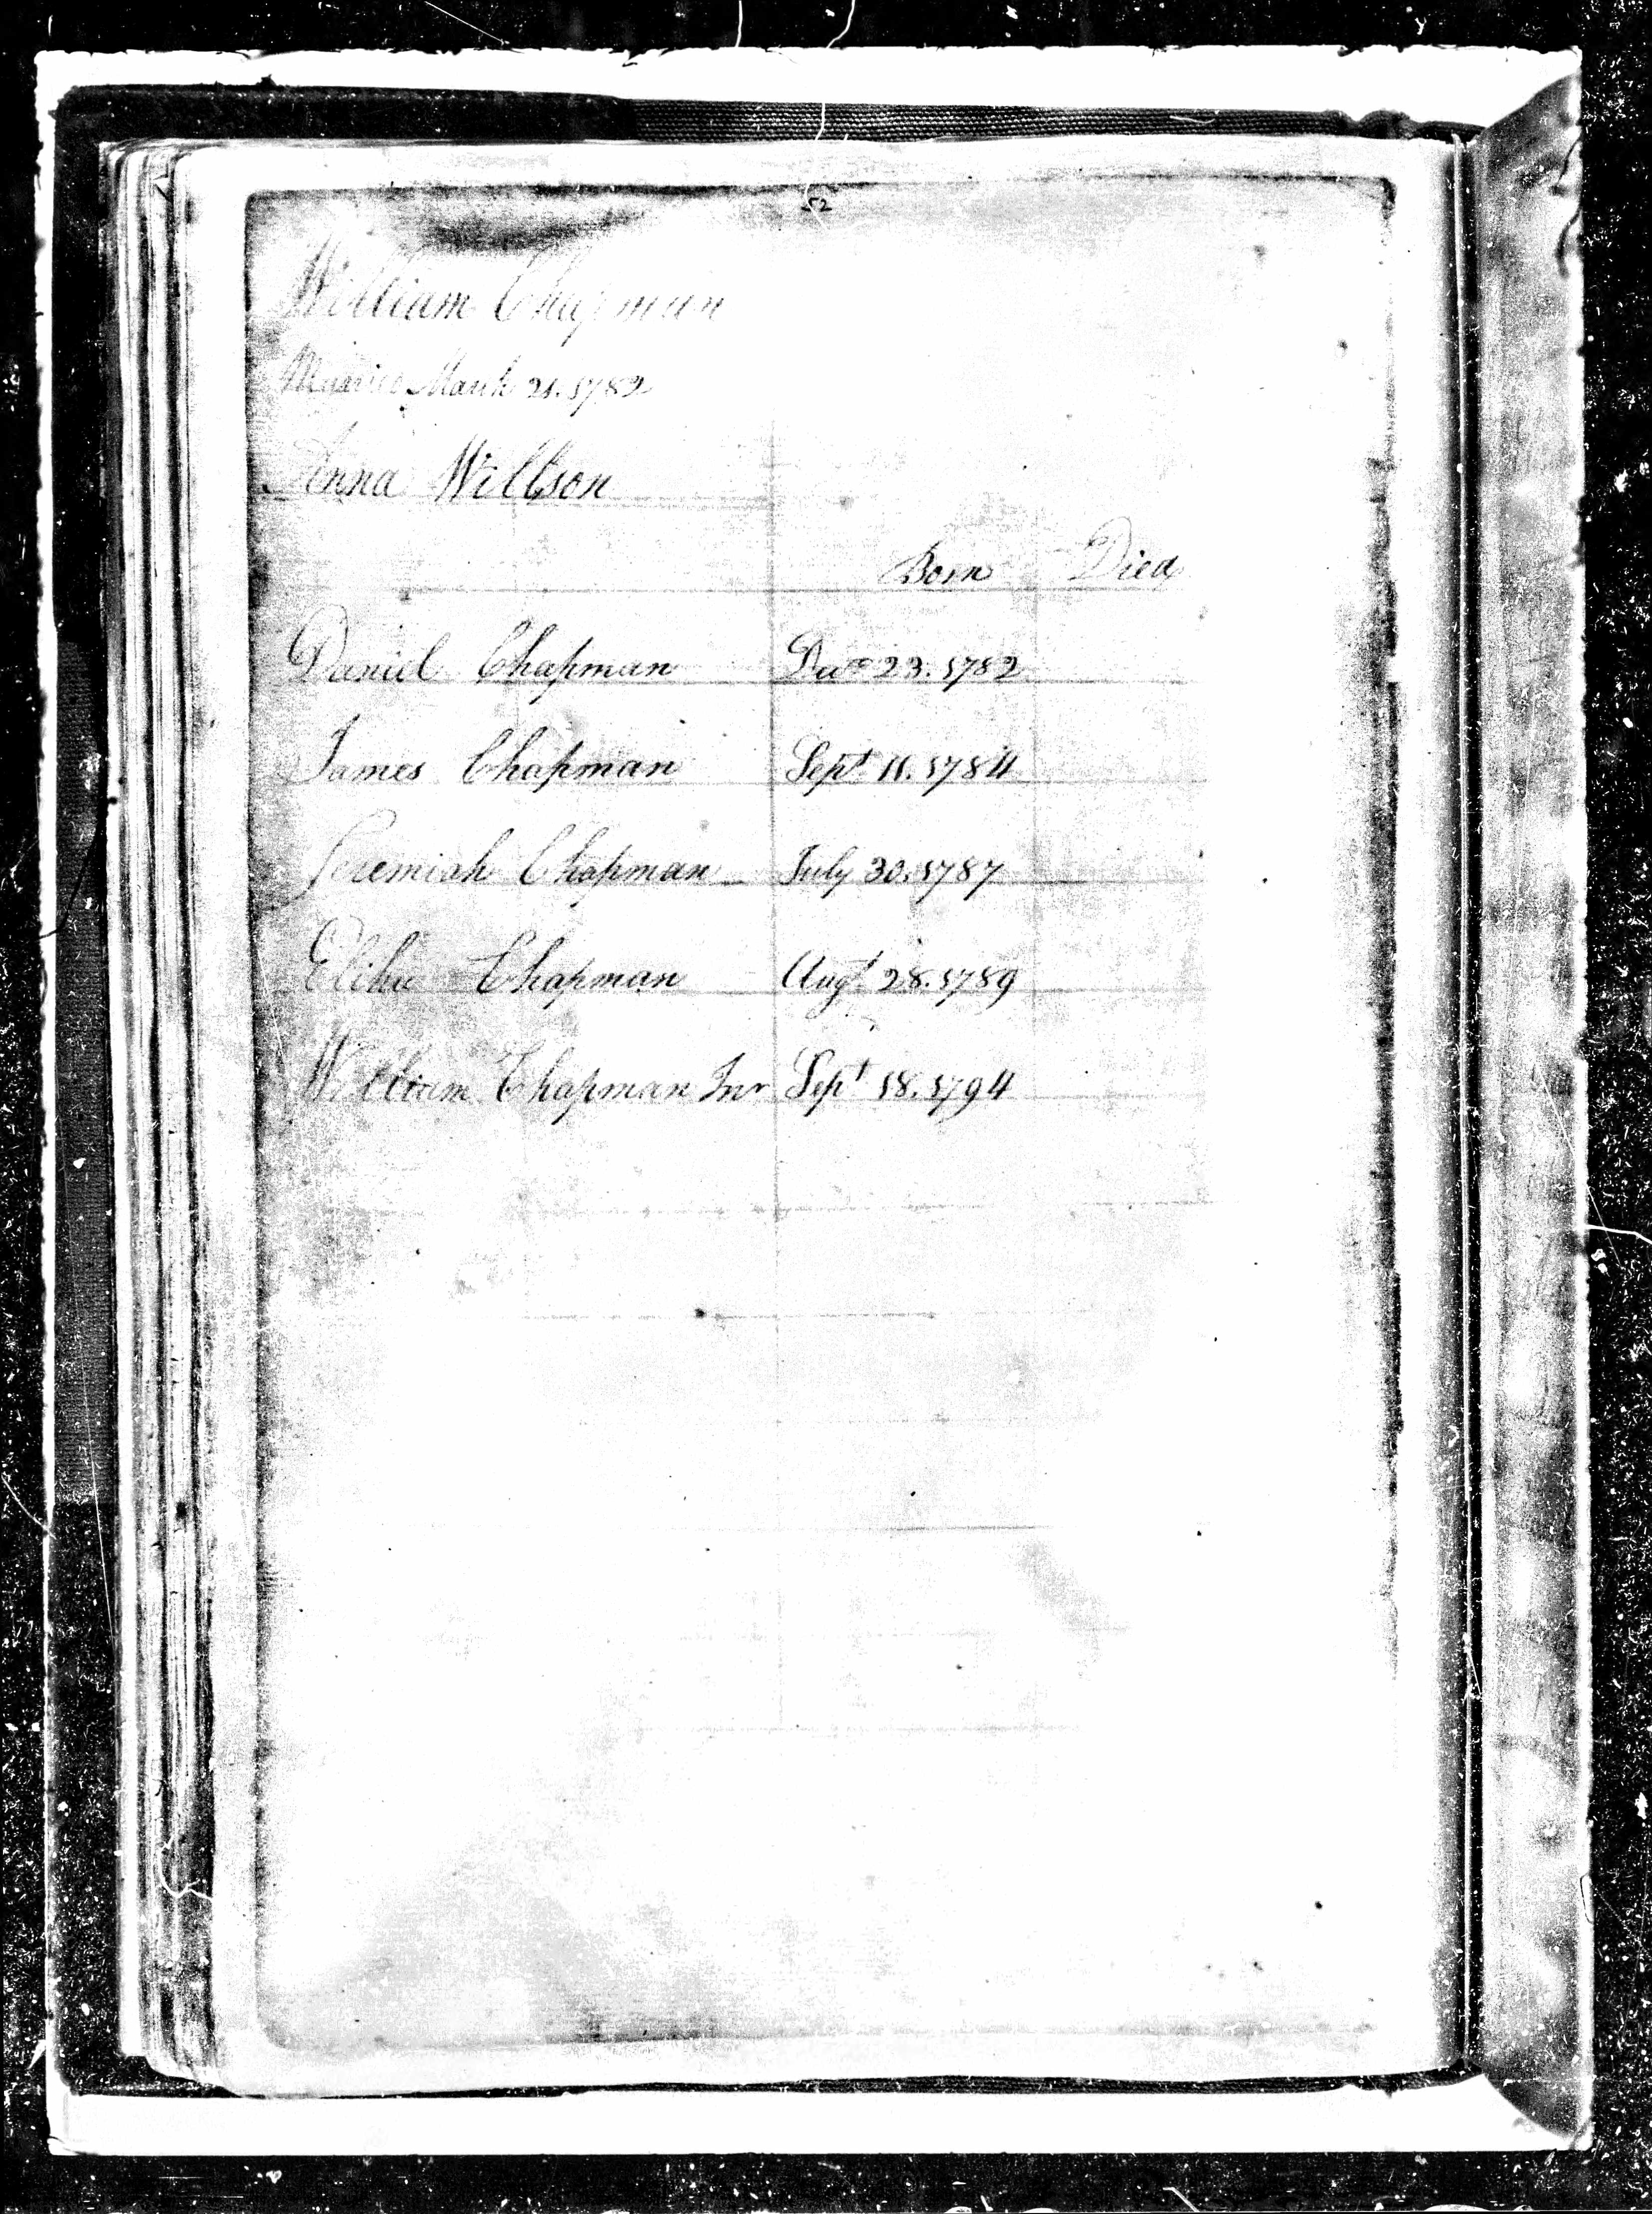 52
William Chapman
Married March 21. 1782
Anna Willson
Born Died
Daniel Chapman Decr 23. 1782
James Chapman Sept 11. 1784
Jeremiah Chapman July 30. 1787
Elihu Chapman Augt 28. 1789
William Chapman Jnr Sept 18. 1794